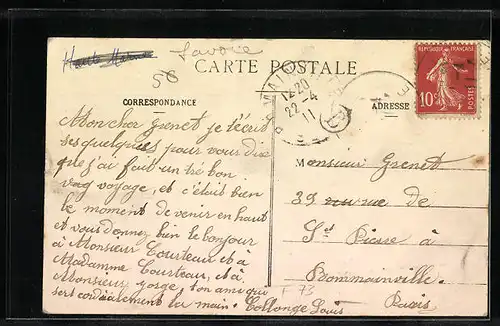 Haute Marne Savoie
58
CARTE POSTALE
RÉPUBLIQUE FRANÇAISE
10c
POSTES
12 20
22 -4
11
CORRESPONDANCE
ADRESSE
Mon cher Grenet je técrit
ses quelques pour vous dir
que j'ai fait un tré bon
voyage, et c'était bien
le moment de venir en haut
et vous donnez bien le bonjour
à Monsieur Tourteau et a
Madamme Tourteau, et à
Monsieur gorge ton ami qui
sert cordialement la main. Collonge Louis
Monsieur Grenet
39 rue de
St Pierre à
Bommainville.
Paris
F 73